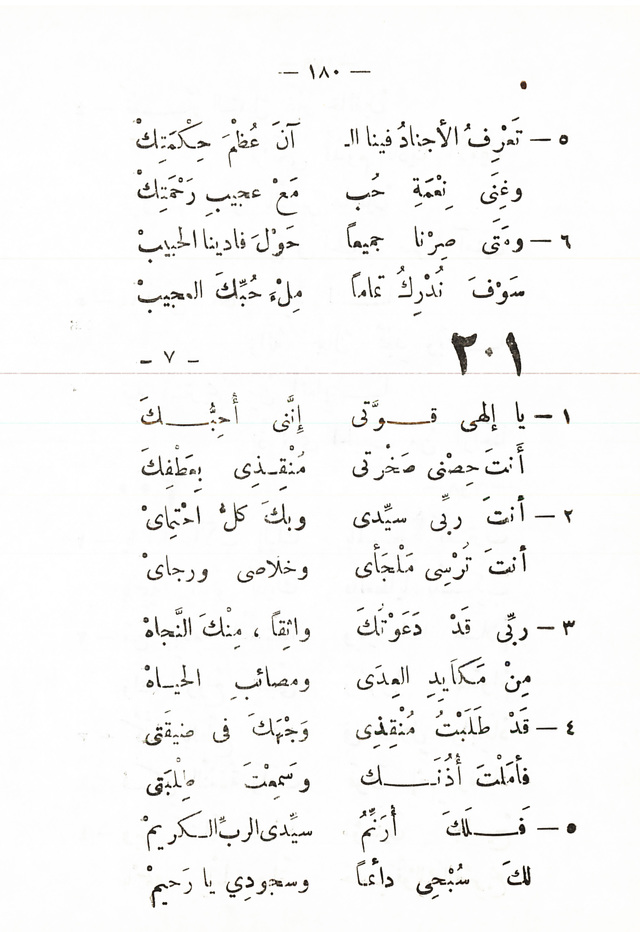 — ١٨٠ —
٥ — تَعْرِفُ الأجنادُ فينا الـ آنَ عُظْمَ حِكْمَتِكْ
وغِنَى نِعْمَةِ حُب مَعْ عجيبِ رَحْمَتِكْ
٦ — ومَتَى صِرْنا جميعاً حَوْلَ فادينا الحبيبْ
سَوْفَ نُدْرِكُ تماماً مِلْءَ حُبِّكَ العجيبْ
٢٠١
– ٧ –
١ — يا إلهى قــوَّتى إنَّنى أُحِبُّـــكَ
أَنتَ حِصْنى صَخْرتى مُنْقِـذِى بِعَطْفِكَ
٢ — أنتَ ربِّى سيِّدى وبكَ كلُّ احْتِماىْ
أنتَ تُرْسِى مَلْجَأى وخلاصى ورجاىْ
٣ — ربِّى قَدْ دَعَوْتُكَ واثِقاً ، مِنْكَ النَّجاهْ
مِنْ مَكاَيِدِ العِدَى ومصائبِ الحيـاهْ
٤ — قَدْ طَلَبْتُ مُنْقِذِى وَجْهَكَ فى ضيقَتى
فأمَلْتَ أُذْنَــــك وسَمِعْتَ طِلْبَتى
٥ — فَــلَكَ أُرَنِّمُ سيِّدى الربِّ الـكريمْ
لكَ سُبْحِى دائماً وسجودِي يا رَحيمْ